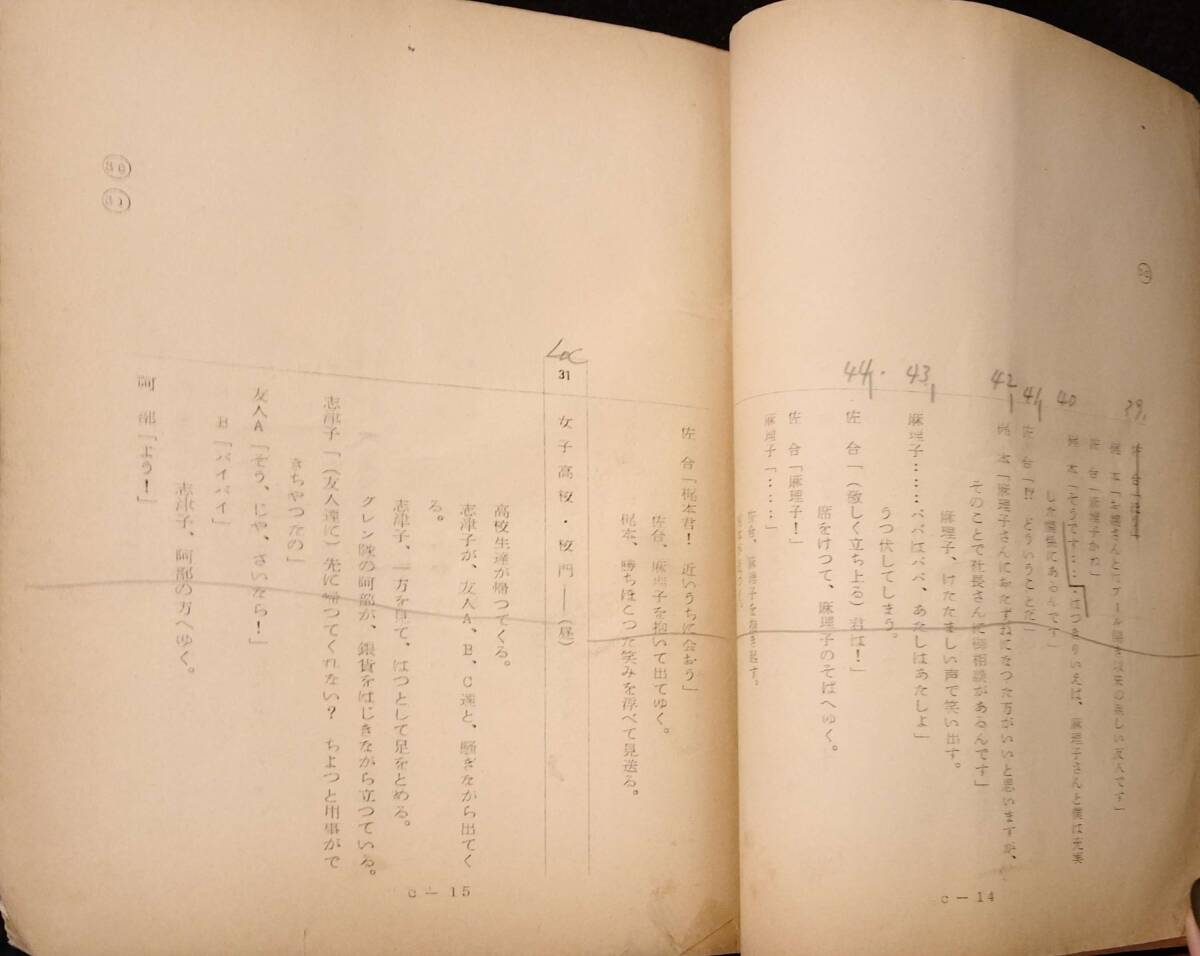 39
佐 台「
梶 本「お嬢さんとはプール開き以来の楽しい友人です」
佐 台「麻理子かね」
40
梶 本「そうです‥‥はつきりいえば、麻理子さんと僕は充実
した関係にあるんです」
41
佐 台「どういうことだ」
42
梶 本「麻理子さんにおたずねになつた方がいいと思いますが、
そのことで社長さんに御相談があるんです」
麻理子、けたたましい声で笑い出す。
43
麻理子‥‥パパはパパ、あたしはあたしよ」
うつ伏してしまう。
44
佐 台「(激しく立ち上る)君は!」
席をけつて、麻理子のそばへゆく。
佐 台「麻理子!」
麻理子「‥‥」
佐台、麻理子を抱き起す。
C-14
佐 台「梶本君! 近いうちに会おう」
佐台、麻理子を抱いて出てゆく。
梶本、勝ちほこつた笑みを浮べて見送る。
Loc
31 女子高校・校門――(昼)
高校生達が帰つてくる。
志津子が、友人A、B、C達と、騒ぎながら出てく
る。
志津子、一方を見て、はつとして足をとめる。
グレン隊の阿部が、銀貨をはじきながら立つている。
志津子「(友人達に)先に帰つてくれない? ちよつと用事がで
きちやつたの」
友人A「そう、じや、さいなら!」
B「バイバイ」
志津子、阿部の方へゆく。
阿 部「よう!」
30
31
C-15